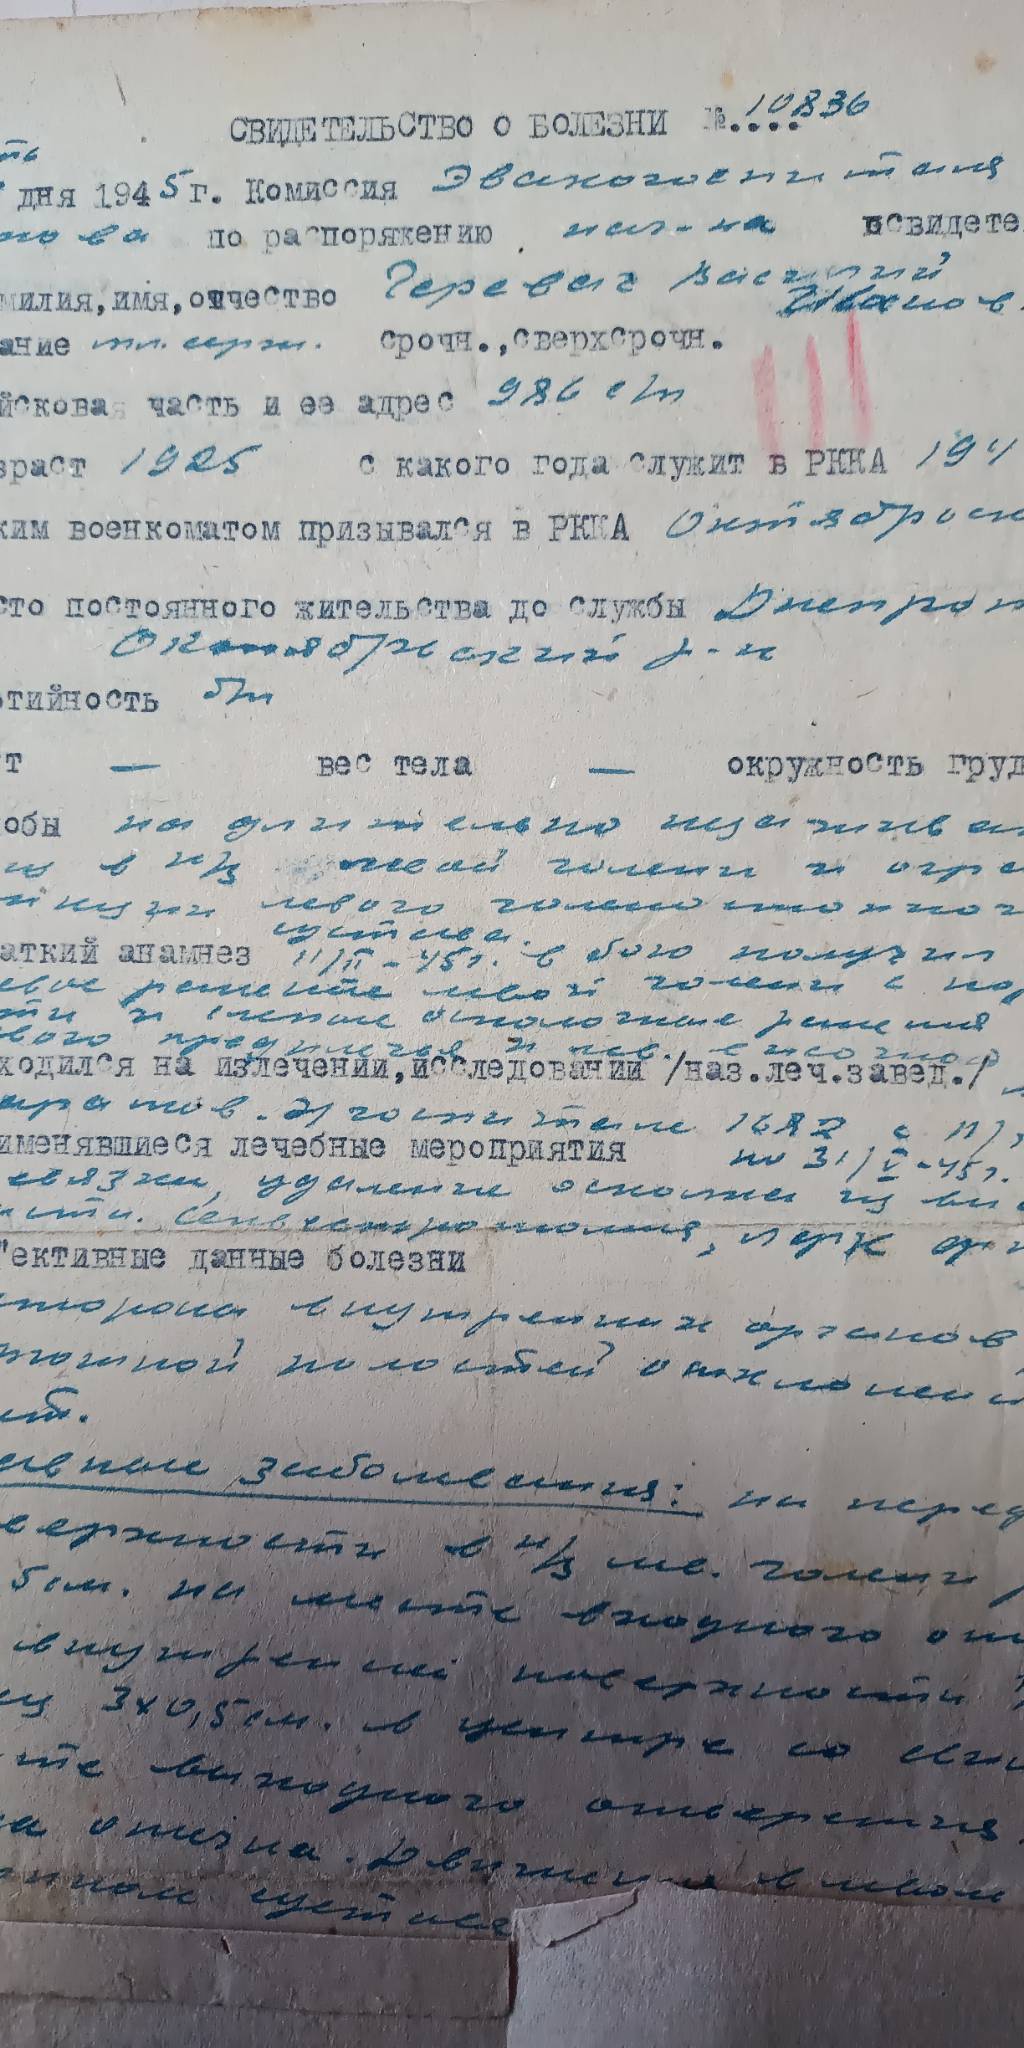 СВИДЕТЕЛЬСТВО О БОЛЕЗНИ №....10836
ть
дня 1945 г. Комиссия Эвакогоспиталя
по распоряжению нач-ка освидете
милия, имя, отчество Черевач Василий
Иванов
ание мл. серж. срочн., сверхсрочн.
йсковая часть и ее адрес 986 с/п
зраст 1925 с какого года служит в РККА 194
ким военкоматом призывался в РККА Октябрьск
сто постоянного жительства до службы Днепроп
Октябрьский р-н
ртийность б/п
т — вес тела — окружность груд
лобы на длительно незажива
щ в н/з левой голени и огра
левого голеностопного
сустава.
аткий анамнез 11/II-45г. в бою получил
евое ранение левой голени с пов
ти и слепые осколочные ранения
вого предплечья и лев.
ходился на излечении, исследовании /наз.леч.завед./
госпитале 1682 с 11/
именявшиеся лечебные мероприятия по 31/V-45г.
евязки, удаление осколка из
сти. Секвестротомия, лфк
ективные данные болезни
стороны внутренних органов
полостей отклонений
ет.
заболевания: на перед
верхности в н/з лев. голени
5 см. на месте входного от
внутренней поверхности
ец 3х0,5 см. в центре со
те выходного отверстия.
на отечна. Движения в левом
суставе